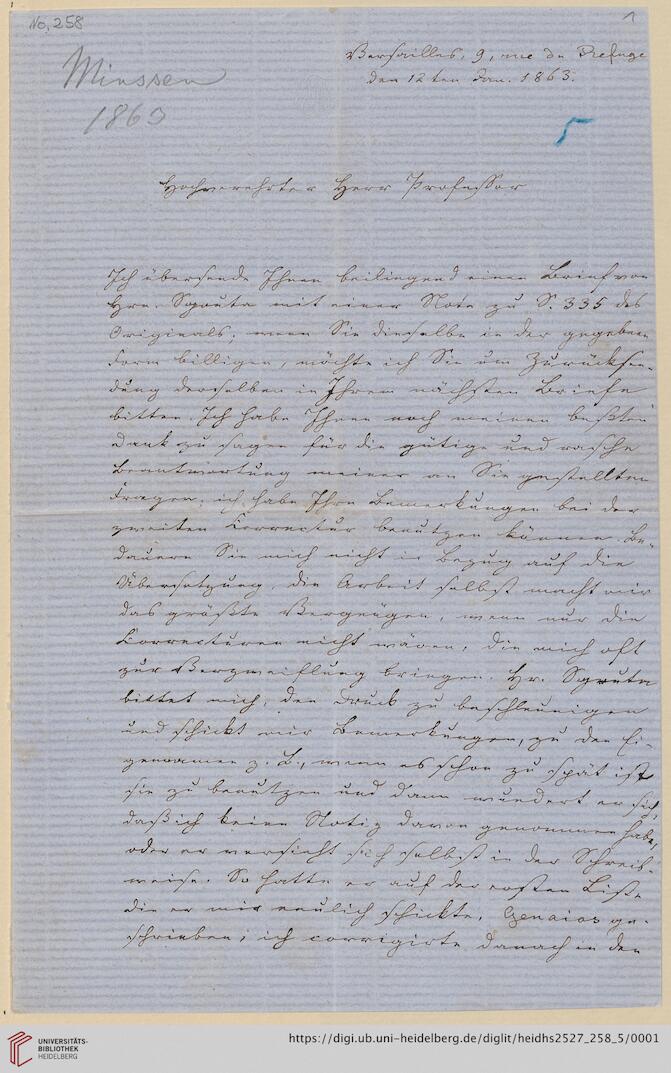 No, 258
1
Minssen
1863
Versailles, 9, rue du Refuge
den 12ten Jan. 1863.
5
Hochverehrter Herr Professor
Ich übersende Ihnen beiliegend einen Brief von
Hrn. Spruta mit einer Note zu S. 335 des
Originals; wenn Sie dieselbe in der gegebenen
Form billigen, möchte ich Sie um Zurücksen-
dung derselben in Ihrem nächsten Briefe
bitten Ich habe Ihnen noch meinen besten
Dank zu sagen für die gütige und rasche
Beantwortung meiner an Sie gestellten
Fragen; ich habe Ihre Bemerkungen bei der
zweiten Correctur benutzen können. Be-
dauern Sie mich nicht in Bezug auf die
Übersetzung, die Arbeit selbst macht mir
das größte Vergnügen, wenn nur die
Correcturen nicht wären, die mich oft
zur Verzweiflung bringen. Hr.
bittet mich, den Druck zu beschleunigen
und schickt mir Bemerkungen, zu den Ei-
gennamen z. B., wenn es schon zu spät ist
sie zu benutzen und dann wundert er sich,
daß ich keine Notiz davon genommen habe,
oder er versieht sich selbst in der Schreib-
weise. So hatte er auf der ersten Liste
die er mir neulich schickte, Genaios ge-
schrieben; ich corrigirte danach in den
UNIVERSITÄTS-
BIBLIOTHEK
HEIDELBERG
https://digi.ub.uni-heidelberg.de/diglit/heidhs2527_258_5/0001